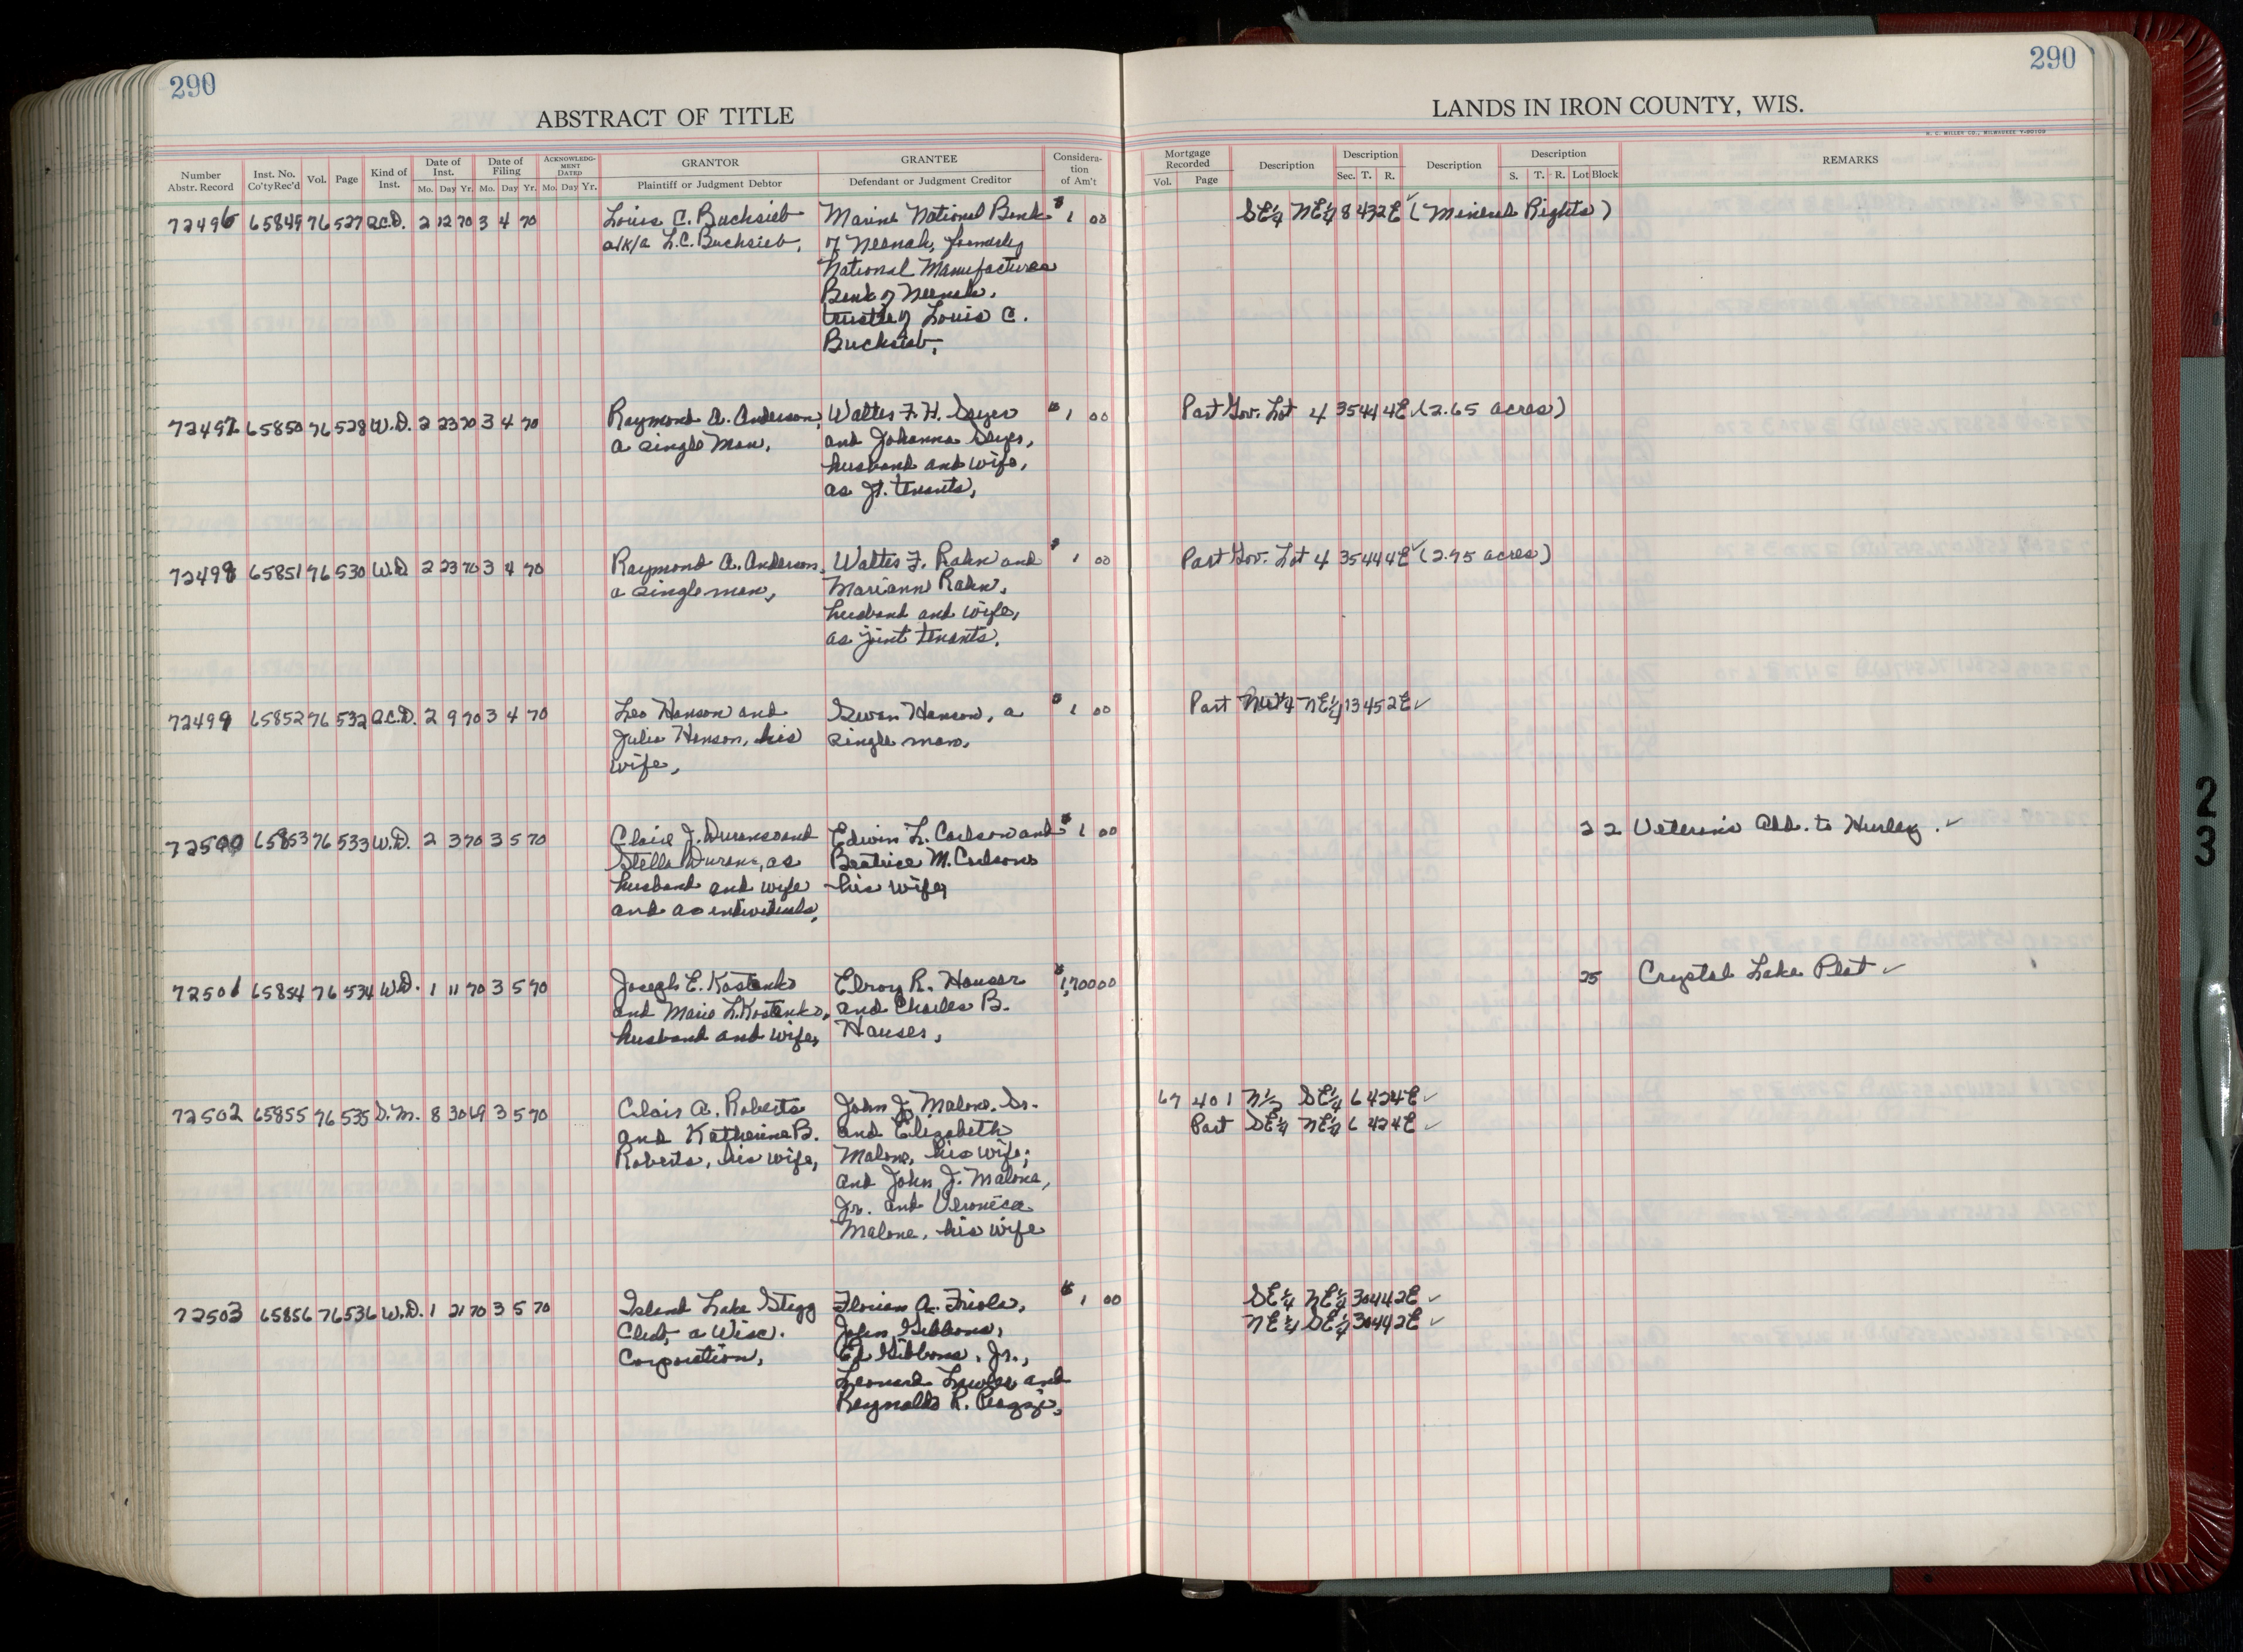 290
290
ABSTRACT OF TITLE
LANDS IN IRON COUNTY, WIS.
H. C. MILLER CO., MILWAUKEE
Number Abstr. Record
Inst. No. Co'ty Rec'd
Vol.
Page
Kind of Inst.
Date of Inst. Mo. Day Yr.
Date of Filing Mo. Day Yr.
ACKNOWLEDGMENT DATED Mo. Day Yr.
GRANTOR Plaintiff or Judgment Debtor
GRANTEE Defendant or Judgment Creditor
Consideration of Am't
Mortgage Recorded Vol. Page
Description
Description Sec. T. R.
Description
Description S. T. R. Lot Block
REMARKS
72496 65849 76 527 Q.C.D. 2 12 70 3 4 70 Louis C. Buchsieb Marine National Bank $1 00 SE¼ NE¼ 8 43 2E ✓ (Mineral Rights)
a/k/a L.C. Buchsieb, of Neenah, formerly
National Manufacturers
Bank of Neenah,
trustee of Louis C.
Buchsieb,
72497 65850 76 528 W.D. 2 23 70 3 4 70 Raymond A. Anderson, Walter F. H. Sayer $1 00 Part Gov. Lot 4 35 44 4E ✓ (2.65 acres)
a single man, and Johanna Sayer,
husband and wife,
as Jt. tenants,
72498 65851 76 530 W.D. 2 23 70 3 4 70 Raymond A. Anderson, Walter F. Rahn and $1 00 Part Gov. Lot 4 35 44 4E ✓ (2.75 acres)
a single man, Mariann Rahn,
husband and wife,
as joint tenants,
72499 65852 76 532 Q.C.D. 2 9 70 3 4 70 Leo Hanson and Hanson, a $1 00 Part NE¼ 13 45 2E ✓
Julia Hanson, his single man,
wife,
72500 65853 76 533 W.D. 2 3 70 3 5 70 and Edwin L. Carlson and $1 00 2 2 Veteran's Add. to Hurley. ✓
Stella as Beatrice M. Carlson
husband and wife his wife,
and as individuals,
72501 65854 76 534 W.D. 1 11 70 3 5 70 Joseph E. Kostenko Elroy R. Hauser $1,700 00 25 Crystal Lake Plat ✓
and Marie L. Kostenko, and Charles B.
husband and wife, Hauser,
72502 65855 76 535 S.M. 8 30 69 3 5 70 Clair A. Roberts John J. Malone, Sr. 67 401 N½ SE¼ 6 42 4E ✓
and Katherine B. and Elizabeth Part SE¼ NE¼ 6 42 4E ✓
Roberts, his wife, Malone, his wife;
and John J. Malone,
Jr. and Veronica
Malone, his wife
72503 65856 76 536 W.D. 1 21 70 3 5 70 Island Lake Stagg Florian A. Friola, $1 00 SE¼ NE¼ 30 44 2E ✓
Club, a Wisc. John Gibbons, NE¼ SE¼ 30 44 2E ✓
Corporation, Ed Gibbons, Jr.,
Leonard Lawler and
Reynaldo R.
23